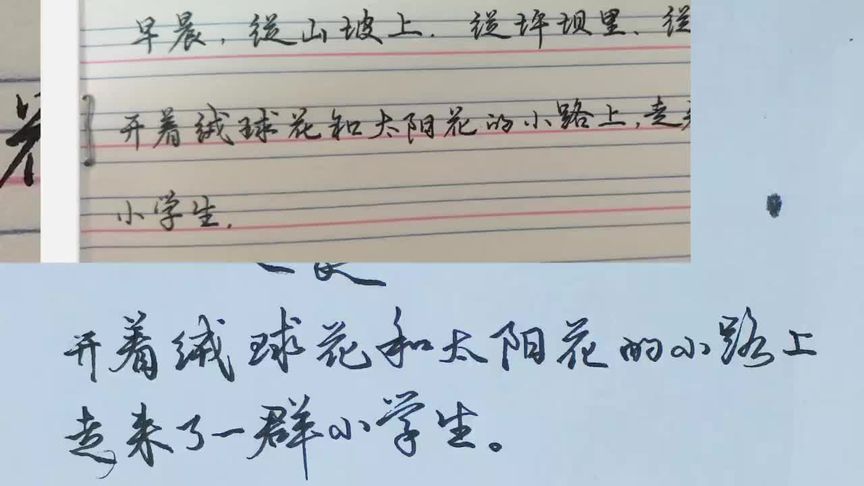 早晨，從山坡上．從坪坝里、從
开着绒球花和太阳花的小路上，走
小学生．
开着绒球花和太阳花的小路上
走来了一群小学生。